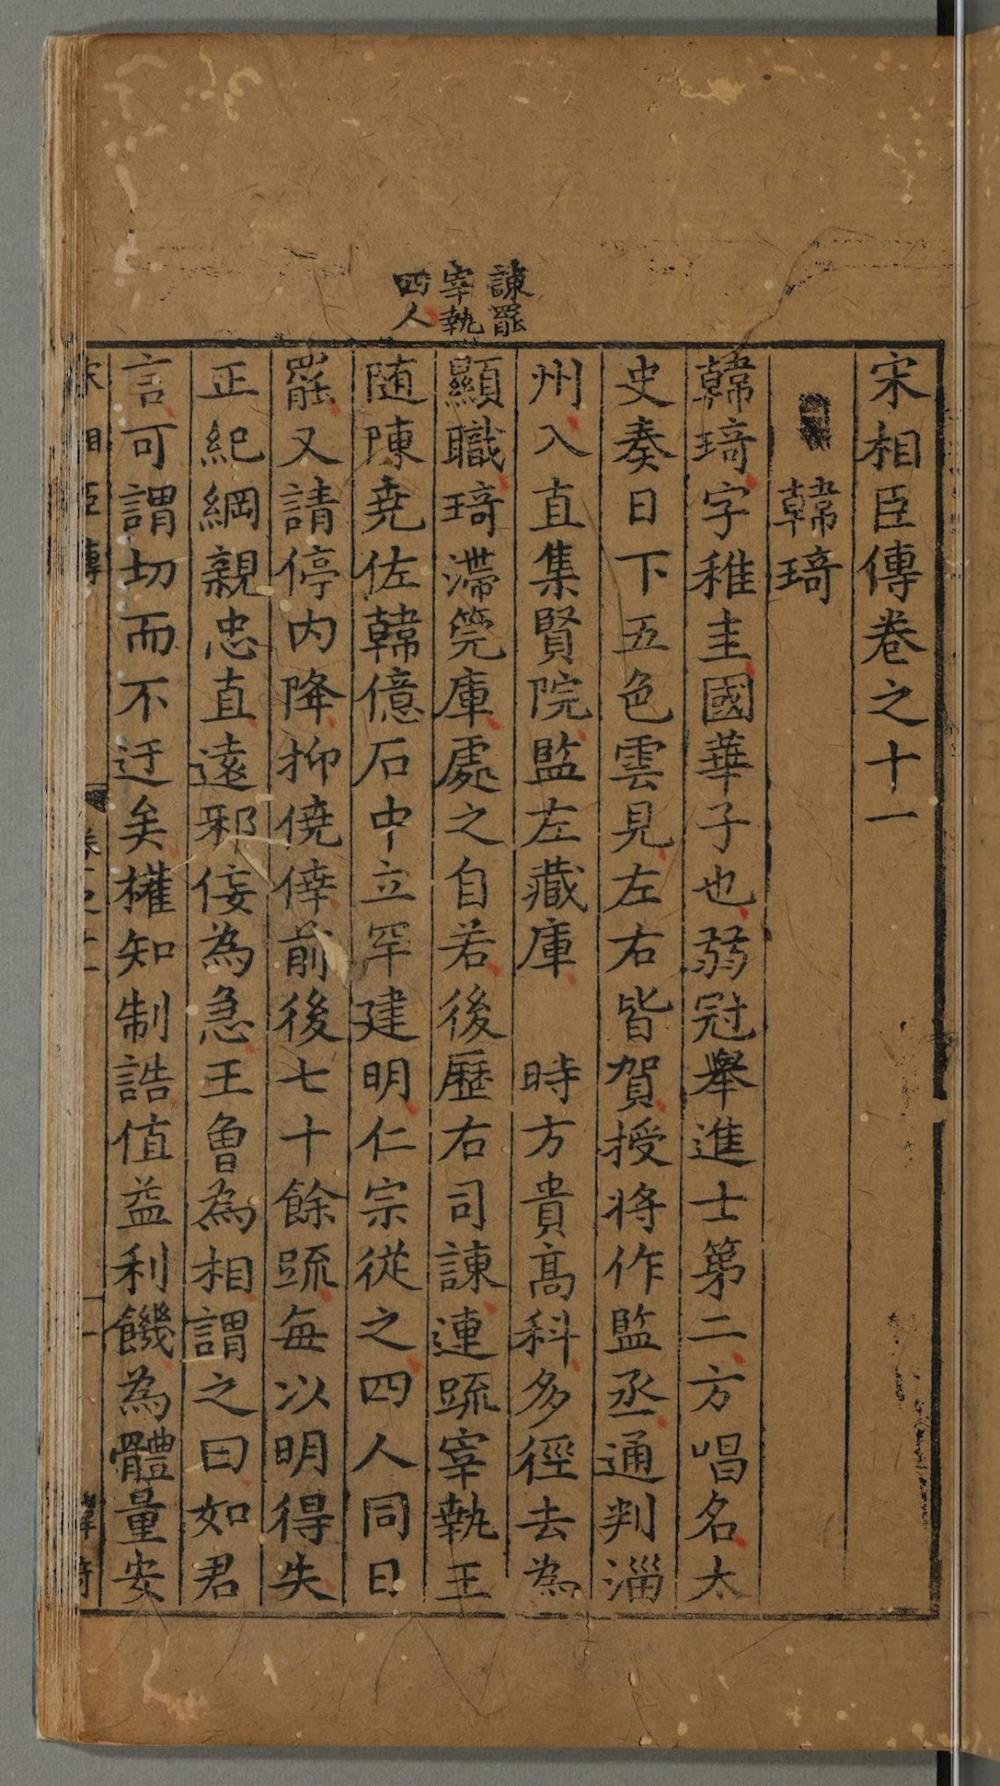 宋相臣傳卷之十一
韓琦
韓琦字稚圭國華子也弱冠舉進士第二方唱名太
史奏日下五色雲見左右皆賀授將作監丞通判淄
州入直集賢院監左藏庫 時方貴高科多徑去為
顯職琦滯筦庫處之自若後歷右司諫連䟽宰執王
随陳尭佐韓億石中立罕建明仁宗從之四人同日
罷又請停内降抑僥倖前後七十餘䟽每以明得失
正紀綱親忠直遠邪佞為急王曾為相謂之曰如君
言可謂切而不迂矣權知制誥值益利饑為體量安
諫罷
宰執
四人
宋相臣傳
卷之十一
一
韓琦